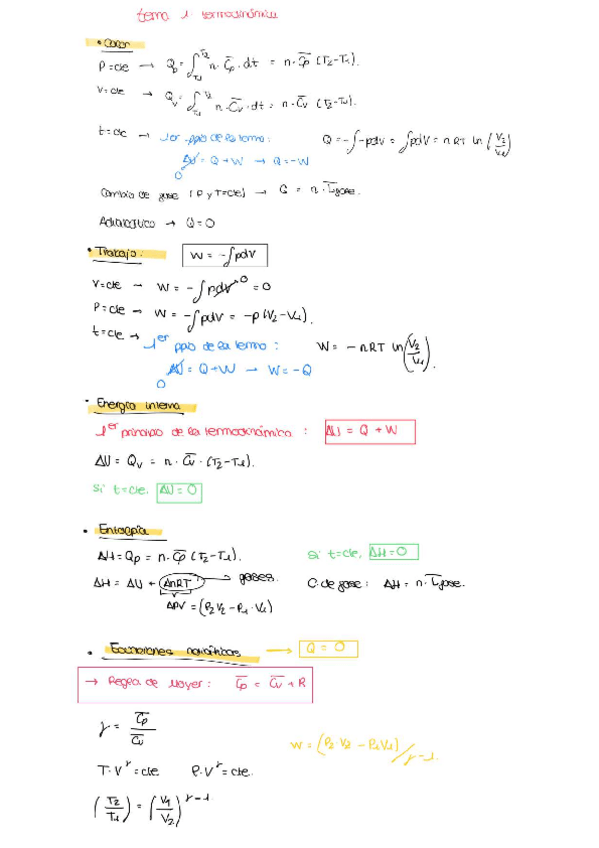 tema 1 termodinámica
• Calor
P=cte → Qp = ∫_T1^T2 n · C̅p · dt = n · C̅p (T2-T1).
V=cte → Qv = ∫_T1^T2 n · C̅v · dt = n · C̅v (T2-T1).
t=cte → 1er ppio de la termo: Q = -∫-pdV = ∫pdV = nRT ln (V2/V1)
ΔU = Q + W → Q = -W
0
Cambio de fase (P y T=cte) → Q = n · L̅fase.
Adiabático → Q=0
• Trabajo: W = -∫pdV
V=cte → W = -∫pdV 0 = 0
P=cte → W = -∫pdV = -p(V2-V1).
t=cte → 1er ppio de la termo: W = -nRT ln (V2/V1).
ΔU = Q+W → W=-Q
0
• Energía interna
1er principio de la termodinámica: ΔU = Q + W
ΔU = Qv = n · C̅v · (T2-T1).
Si t=cte, ΔU=0
• Entalpía
ΔH=Qp = n · C̅p (T2-T1). si t=cte, ΔH=0
ΔH = ΔU + ΔnRT → gases. C. de fase: ΔH = n · L̅fase.
ΔPV = (P2V2 - P1 · V1)
• Ecuaciones adiabáticas → Q = 0
→ Regla de Mayer: C̅p = C̅v + R
γ = C̅p / C̅v
W = (P2 · V2 - P1V1) / γ-1.
T · V^γ = cte. P · V^γ = cte.
(T2/T1) = (V1/V2)^γ-1